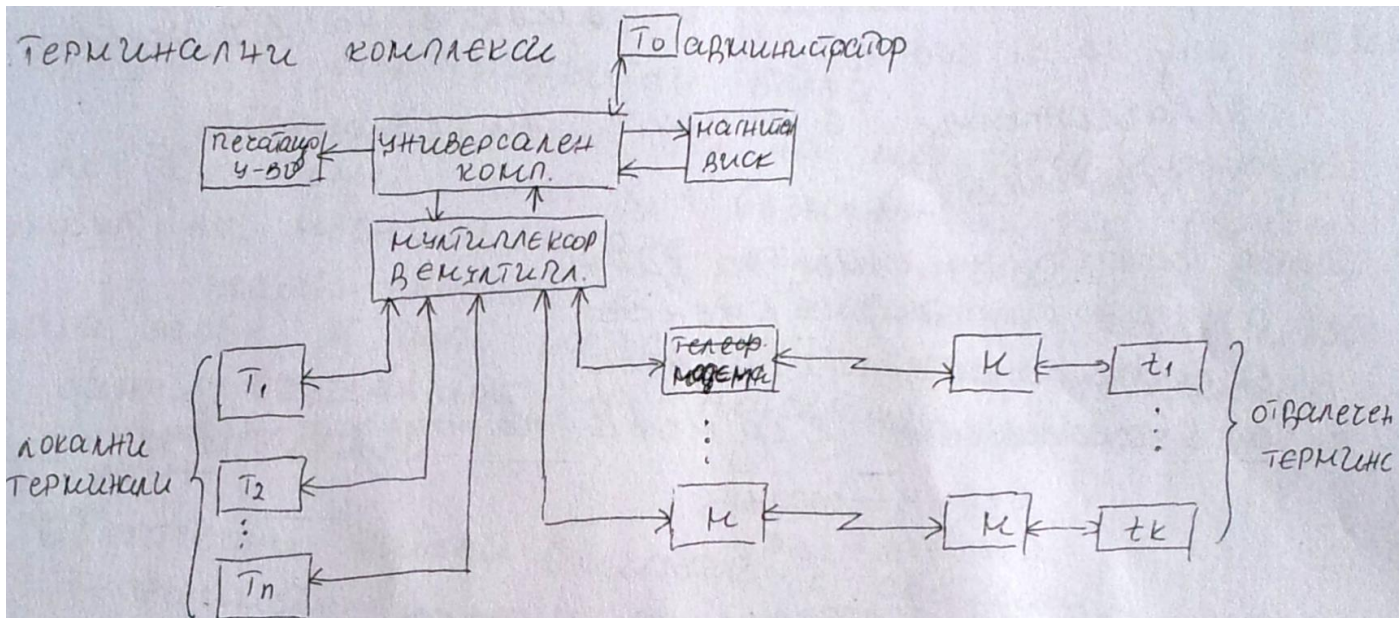 Терминални комплекси
T0 администратор
печатащо
у-во
универсален
комп.
магнитен
диск
мултиплексор
демултипл.
локални
терминали
T1
T2
Tn
телеф.
модеми
М
М
М
t1
tk
отдалечен
термина